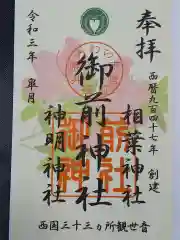 奉拝
西暦九百四十七年 創建
相葉神社
御前神社
神明神社
令和三年 皐月
西国三十三カ所観世音